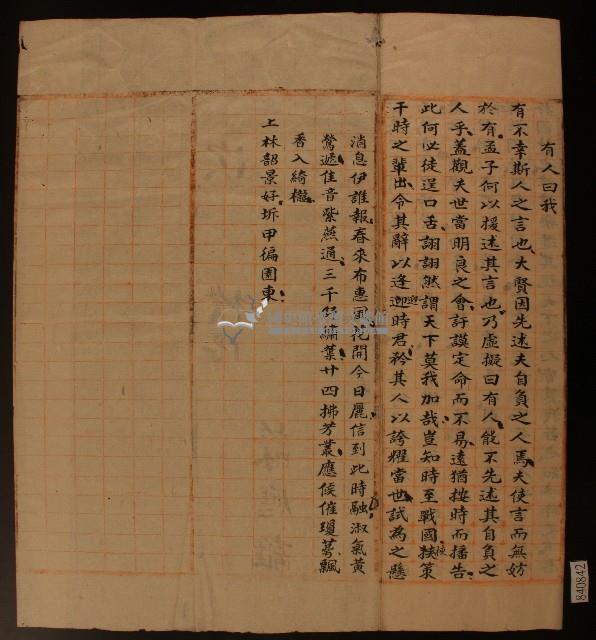 有人曰我
有不幸斯人之言也大賢因先述夫自負之人焉夫使言而無妨
於有孟子何以援述其言也乃虛擬曰有人能不先述其自負之
人乎蓋觀夫世當明良之會訏謨定命而不易遠猶按時而播告
此何必徒逞口舌詡詡然謂天下莫我加哉豈知時至戰國挾策
干時之輩出令其辭以逢迎時君矜其人以誇耀當世試為之懸
消息伊誰報春來布惠風花開今日麗信到此時融淑氣黃
鶯遞佳音紫燕通三千繡葉廿四拂芳叢應候催瓊萼飄
香入綺櫳
上林韶景好坼甲徧園東
840842